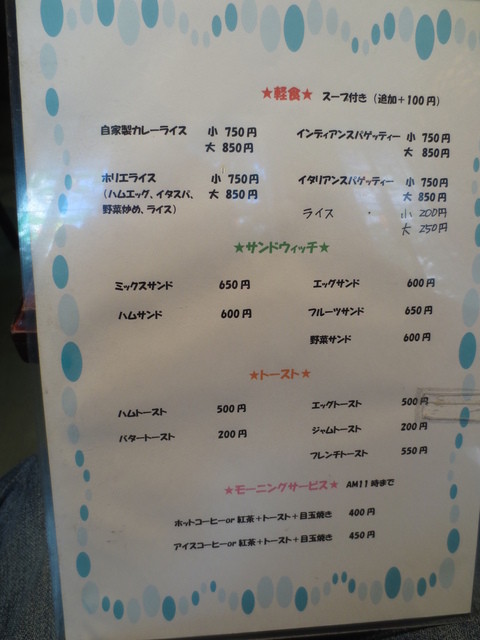 ★軽食★ スープ付き（追加＋100円）
自家製カレーライス 小 750円
大 850円
インディアンスパゲッティー 小 750円
大 850円
ホリエライス 小 750円
（ハムエッグ、イタスパ、 大 850円
野菜炒め、ライス）
イタリアンスパゲッティー 小 750円
大 850円
ライス 小 200円
大 250円
★サンドウィッチ★
ミックスサンド 650円 エッグサンド 600円
ハムサンド 600円 フルーツサンド 650円
野菜サンド 600円
★トースト★
ハムトースト 500円 エッグトースト 500円
バタートースト 200円 ジャムトースト 200円
フレンチトースト 550円
★モーニングサービス★ AM11時まで
ホットコーヒーor紅茶＋トースト＋目玉焼き 400円
アイスコーヒーor紅茶＋トースト＋目玉焼き 450円